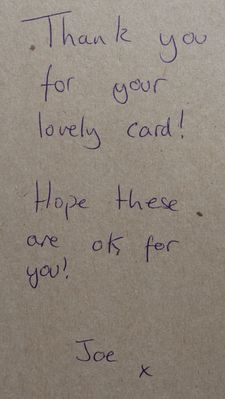 Thank you
for your
lovely card!
Hope these
are ok for
you!
Joe
x